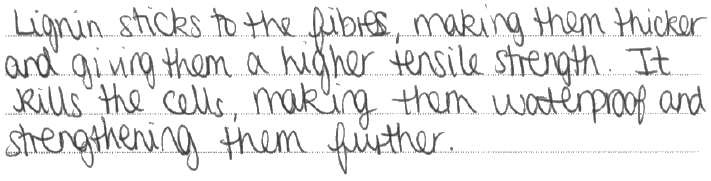 Lignin sticks to the fibres, making them thicker
and giving them a higher tensile strength. It
kills the cells, making them waterproof and
strengthening them further.